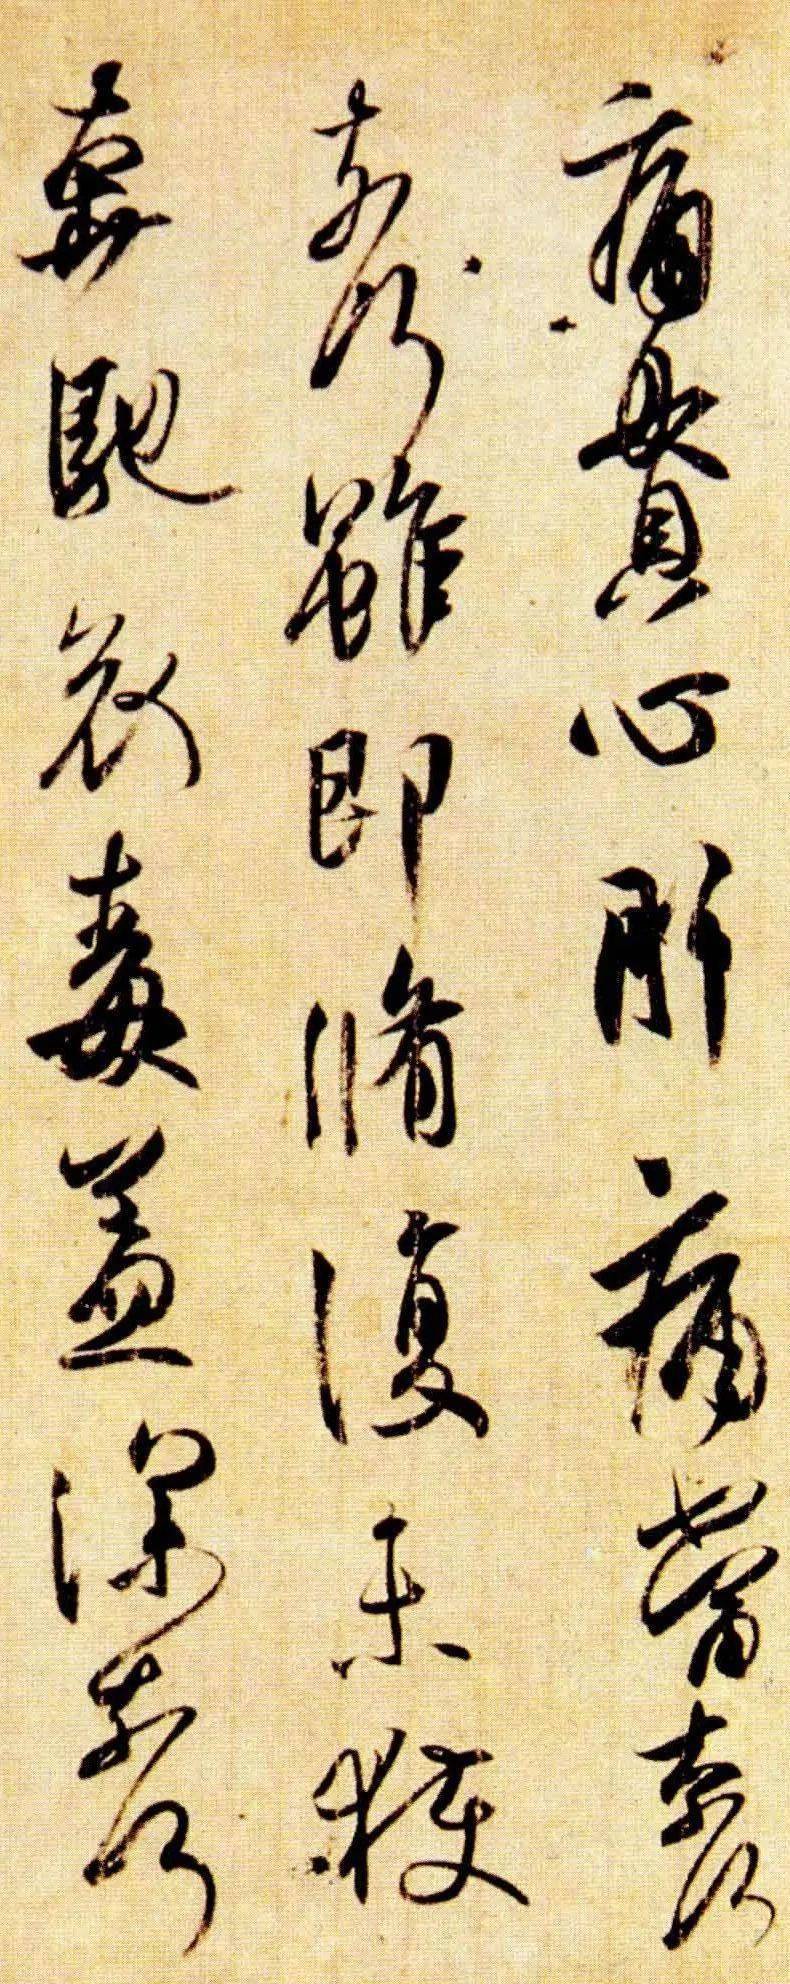 痛貫心肝痛當柰何
柰何雖即脩復未獲
奔馳哀毒益深柰何